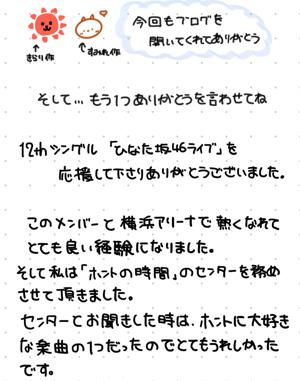 今回もブログを
開いてくれてありがとう
むらり作
すみれ作
そして… もう1つありがとうを言わせてね
12thシングル 「ひなた坂46ライブ」を
応援して下さりありがとうございました。
このメンバーと横浜アリーナで熱くなれて
とても良い経験になりました。
そして私は「ホントの時間」のセンターを務め
させて頂きました。
センターとお聞きした時は、ホントに大好き
な楽曲の1つだったのでとてもうれしかった
です。